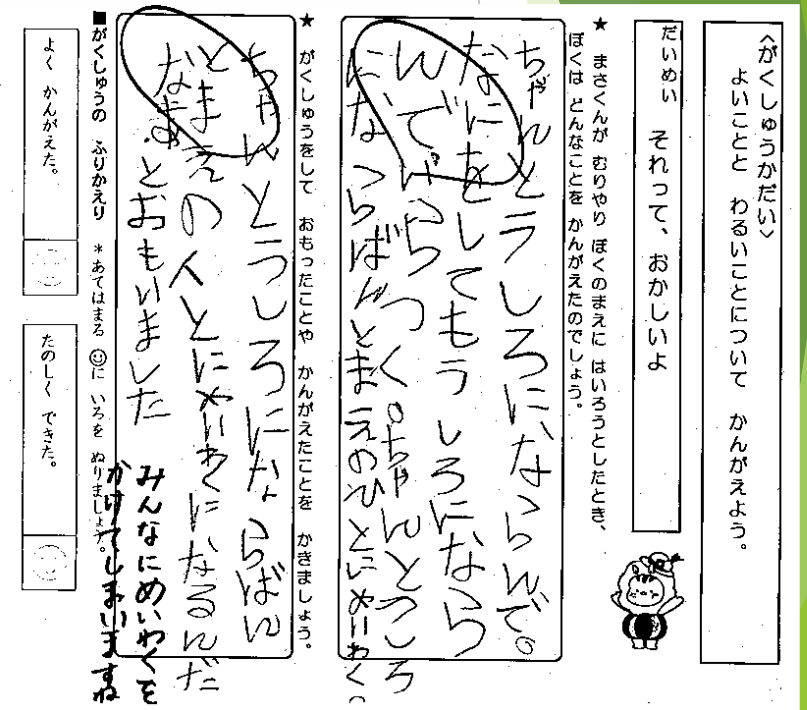 〈がくしゅうかだい〉
よいことと わるいことについて かんがえよう。
だいめい それって、おかしいよ
★ まさくんが むりやり ぼくのまえに はいろうとしたとき、
ぼくは どんなことを かんがえたのでしょう。
ちゃんとうしろにならんで。
なにをしてもうしろになら
んで。いらつく。ちゃんとうしろ
にならばんとまえのひとにめいわく。
★ がくしゅうをして おもったことや かんがえたことを かきましょう。
ちゃんとうしろにならばん
とまえの人とにめいわくになるんだ
なあ。とおもいました
みんなにめいわくを
かけてしまいますね
■がくしゅうの ふりかえり ＊あてはまる ☺に いろを ぬりましょう。
よく かんがえた。
たのしく できた。